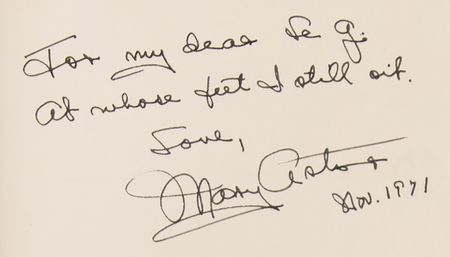 For my dear Le G.
At whose feet I still sit.
Love,
Mary Astor
Nov. 1971